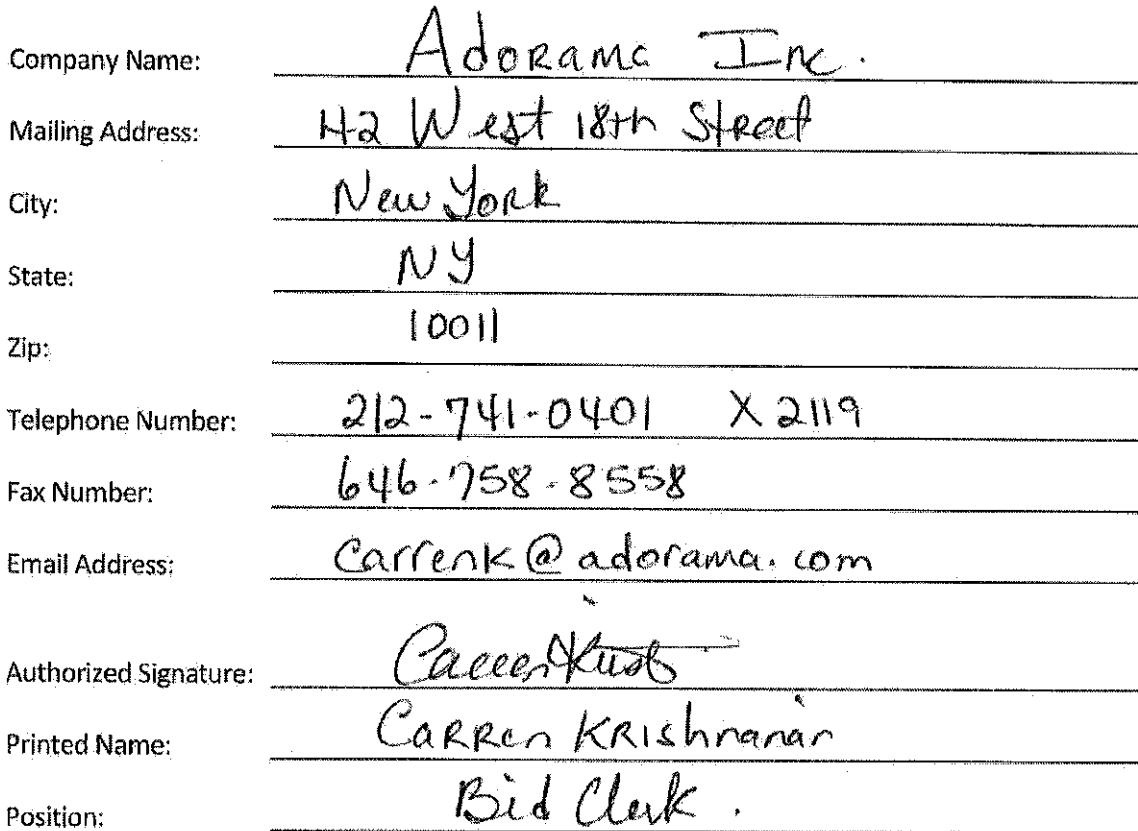 Company Name: Adorama Inc.
Mailing Address: 42 West 18th Street
City: New York
State: NY
Zip: 10011
Telephone Number: 212-741-0401 X2119
Fax Number: 646-758-8558
Email Address: carrenk@adorama.com
Authorized Signature:
Printed Name: Carren Krishnanan
Position: Bid Clerk.